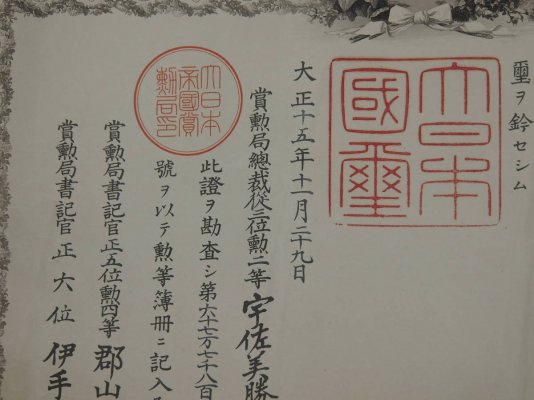 璽ヲ鈐セシム
大日本國璽
大正十五年十一月二十九日
大日本帝國賞勲局印
賞勲局總裁從三位勲二等宇佐美勝
此證ヲ勘査シ第六十七万七千八百
號ヲ以テ勲等簿冊ニ記入
賞勲局書記官正五位勲四等郡山
賞勲局書記官正六位伊手